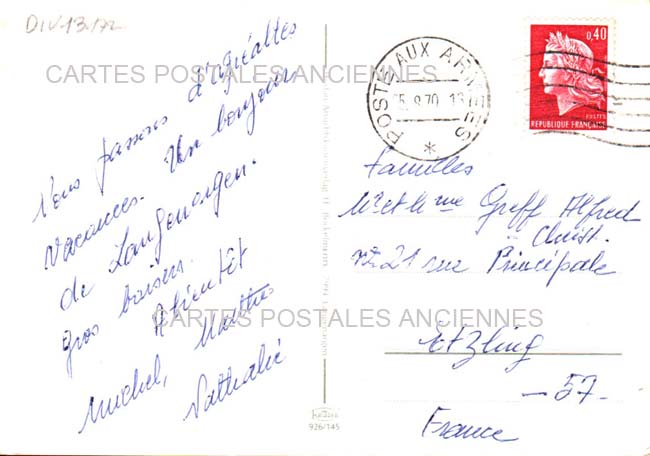 DIV-13-172
CARTES POSTALES ANCIENNES
Nous passons d'agréables
vacances. Un bonjour
de Langenargen.
Gros baisers.
A bientôt
Michel, Marthe
Nathalie
POSTE AUX ARMÉES
5.8.70
0,40
POSTES
REPUBLIQUE FRANÇAISE
Familles
Mr et Mme Greff Alfred
Christ.
21 rue Principale
Etzling
- 57 -
France
CARTES POSTALES ANCIENNES
926/145